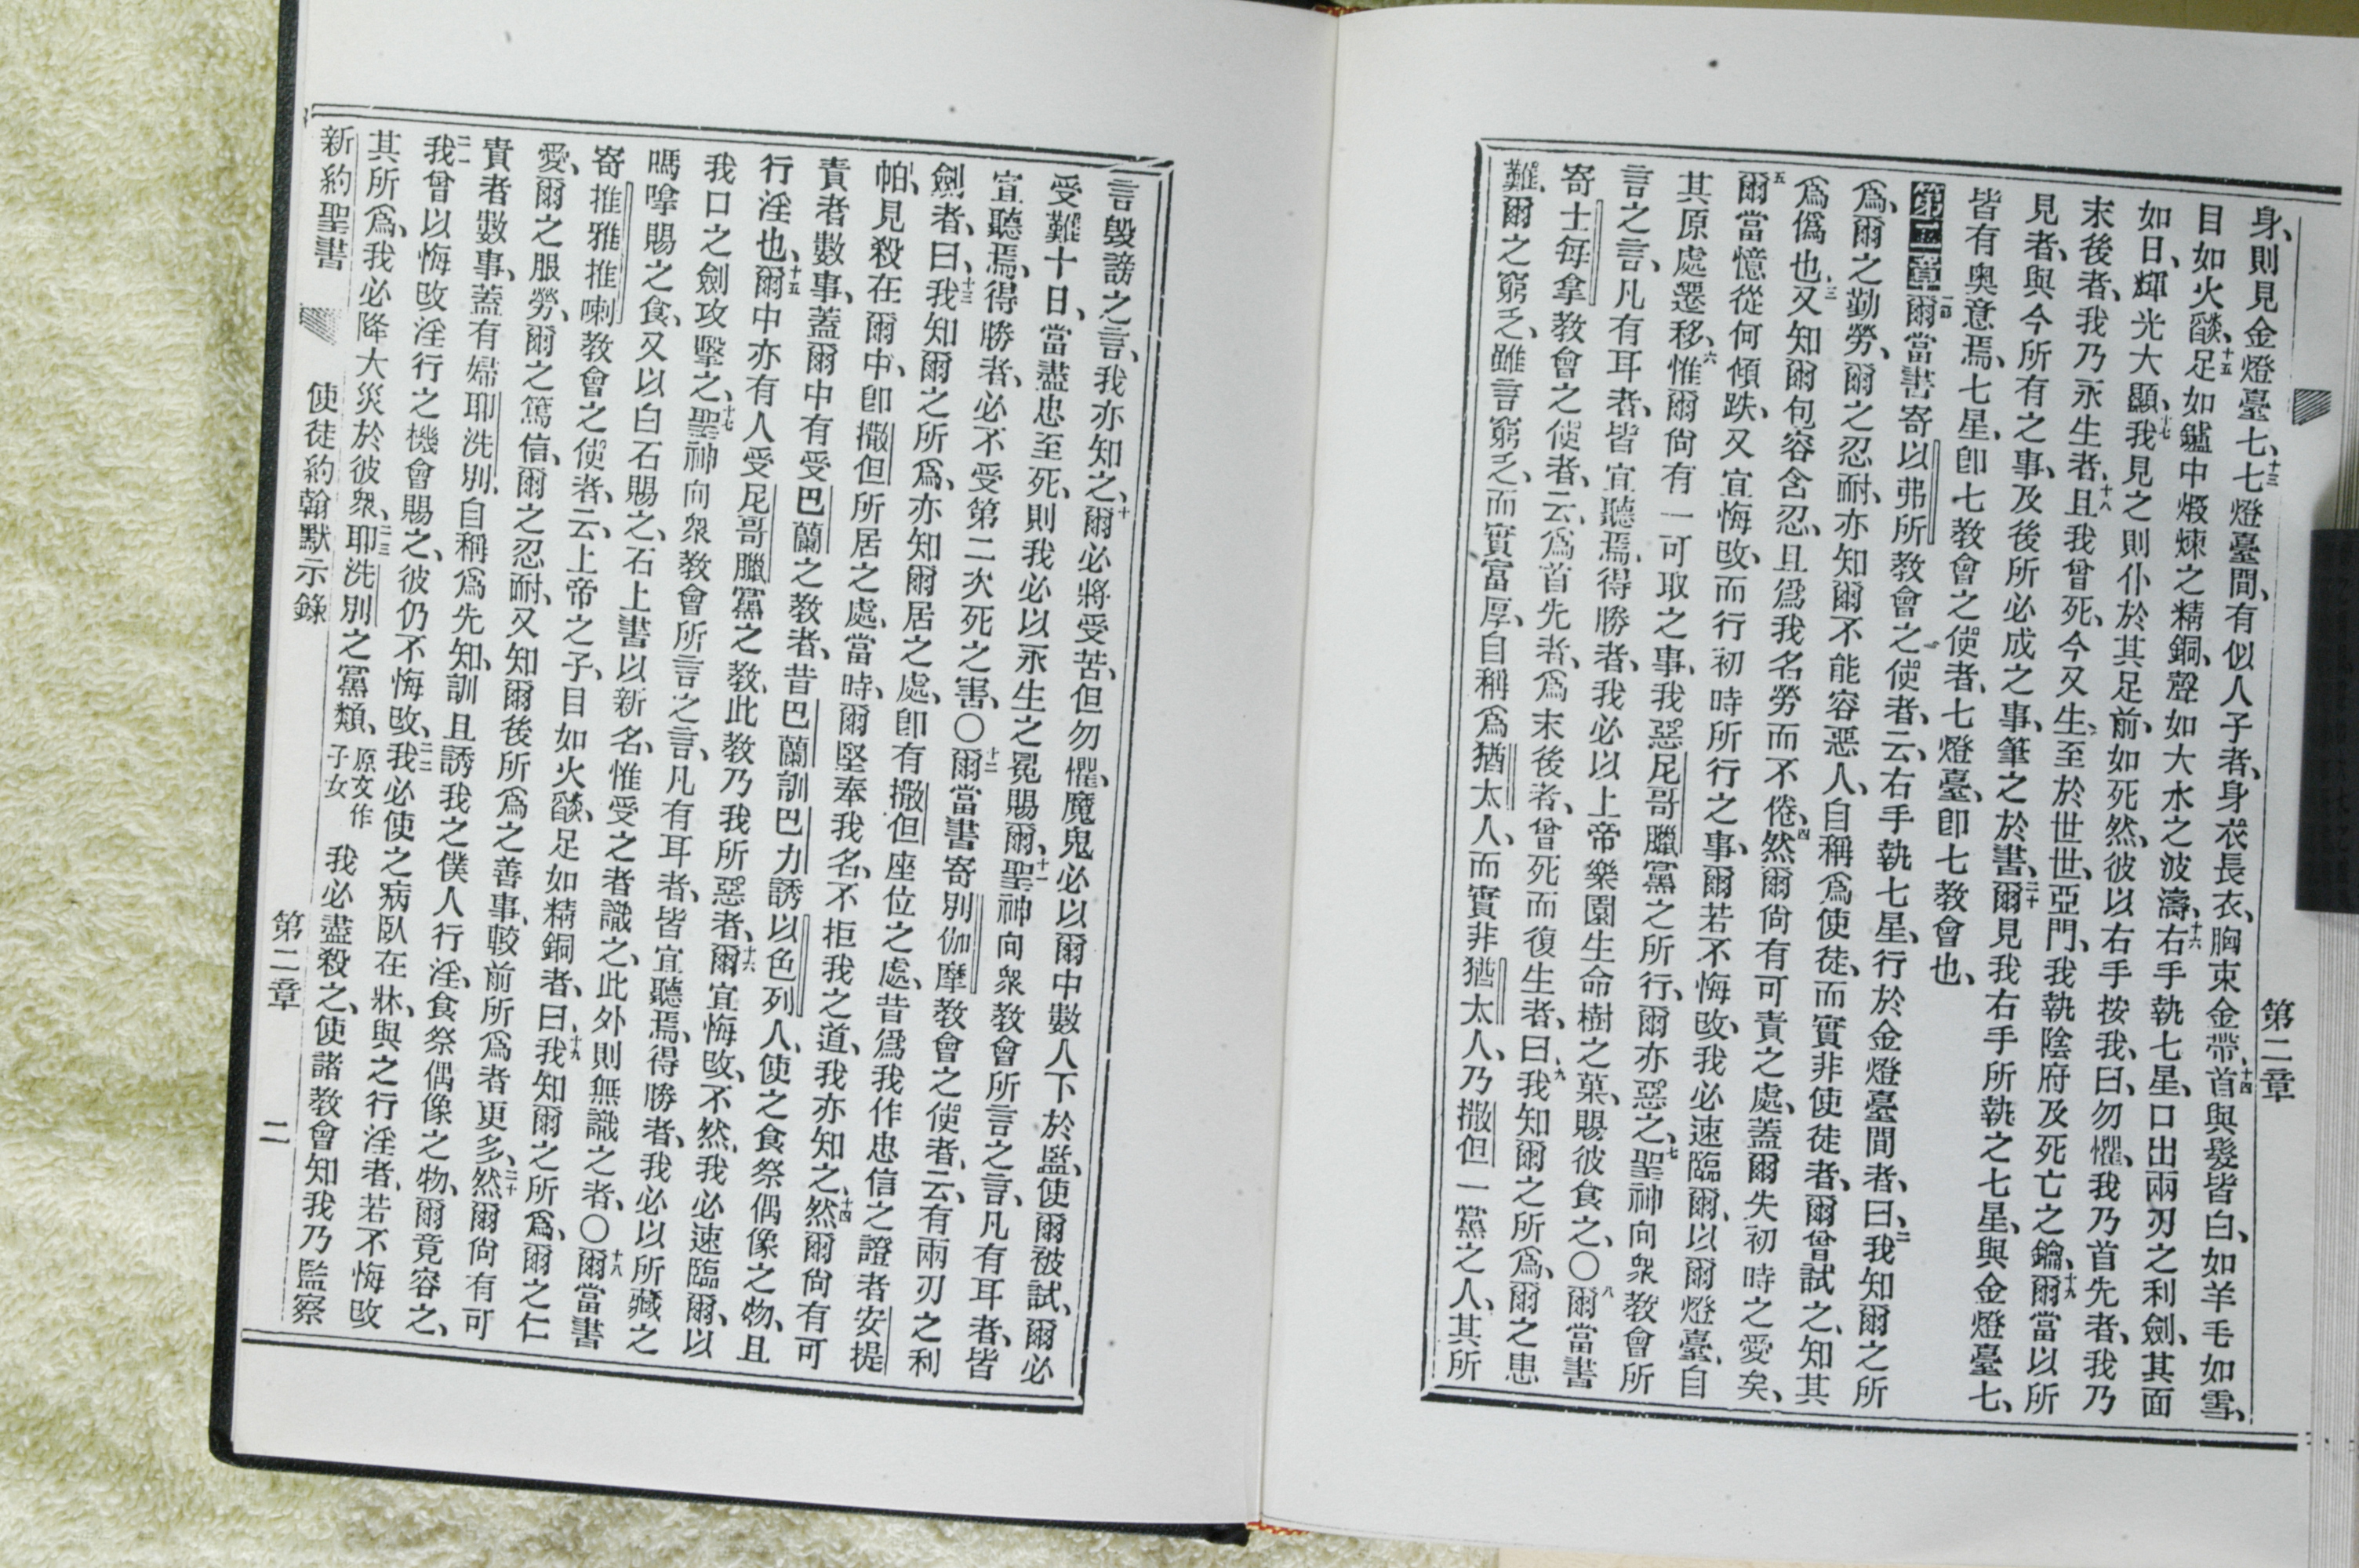 第二章
身、則見金燈臺七、十三七燈臺間、有似人子者、身衣長衣、胸束金帶、十四首與髮皆白、如羊毛如雪、
目如火燄、十五足如鑪中煅煉之精銅、聲如大水之波濤、十六右手執七星、口出兩刃之利劍、其面
如日、輝光大顯、十七我見之則仆於其足前、如死然、彼以右手按我、曰、勿懼、我乃首先者、我乃
末後者、我乃永生者、十八且我曾死、今又生、至於世世、亞門、我執陰府及死亡之鑰、十九爾當以所
見者、與今所有之事、及後所必成之事、筆之於書、二十爾見我右手所執之七星、與金燈臺七、
皆有奧意焉、七星、卽七教會之使者、七燈臺、卽七教會也、
第二章一爾當書寄以弗所教會之使者、云、右手執七星、行於金燈臺間者、曰、二我知爾之所
爲、爾之勤勞、爾之忍耐、亦知爾不能容惡人、自稱爲使徒、而實非使徒者、爾曾試之、知其
爲僞也、三又知爾包容含忍、且爲我名勞而不倦、四然爾尙有可責之處、蓋爾失初時之愛矣、
五爾當憶從何傾跌、又宜悔改、而行初時所行之事、爾若不悔改、我必速臨爾、以爾燈臺、自
其原處遷移、六惟爾尙有一可取之事、我惡尼哥臘黨之所行、爾亦惡之、七聖神向衆教會所
言之言、凡有耳者、皆宜聽焉、得勝者、我必以上帝樂園生命樹之菓、賜彼食之、○八爾當書
寄士每拿教會之使者、云、爲首先者、爲末後者、曾死而復生者、曰、九我知爾之所爲、爾之患
難、爾之窮乏、雖言窮乏、而實富厚、自稱爲猶太人、而實非猶太人、乃撒但一黨之人、其所
言毀謗之言、我亦知之、十爾必將受苦、但勿懼、魔鬼必以爾中數人下於監、使爾被試、爾必
受難十日、當盡忠至死、則我必以永生之冕賜爾、十一聖神向衆教會所言之言、凡有耳者、皆
宜聽焉、得勝者、必不受第二次死之害、○十二爾當書寄別伽摩教會之使者、云、有兩刃之利
劍者、曰、十三我知爾之所爲、亦知爾居之處、卽有撒但座位之處、昔爲我作忠信之證者安提
帕、見殺在爾中、卽撒但所居之處、當時、爾堅奉我名、不拒我之道、我亦知之、十四然爾尙有可
責者數事、蓋爾中有受巴蘭之教者、昔巴蘭訓巴力誘以色列人、使之食祭偶像之物、且
行淫也、十五爾中亦有人受尼哥臘黨之教、此教乃我所惡者、十六爾宜悔改、不然、我必速臨爾、以
我口之劍攻擊之、十七聖神向衆教會所言之言、凡有耳者、皆宜聽焉、得勝者、我必以所藏之
嗎嗱賜之食、又以白石賜之、石上書以新名、惟受之者識之、此外則無識之者、○十八爾當書
寄推雅推喇教會之使者、云、上帝之子、目如火燄、足如精銅者、曰、十九我知爾之所爲、爾之仁
愛、爾之服勞、爾之篤信、爾之忍耐、又知爾後所爲之善事、較前所爲者更多、二十然爾尙有可
責者數事、蓋有婦耶洗別、自稱爲先知、訓且誘我之僕人行淫、食祭偶像之物、爾竟容之、
二一我曾以悔改淫行之機會賜之、彼仍不悔改、二二我必使之病臥在牀、與之行淫者、若不悔改
其所爲、我必降大災於彼衆、二三耶洗別之黨類、原文作子女我必盡殺之、使諸教會知我乃監察
新約聖書 使徒約翰默示錄 第二章 二